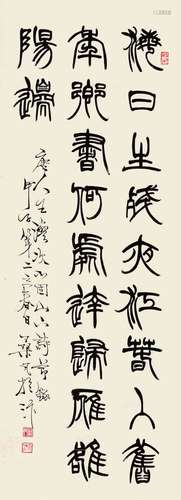 海日生殘夜江春入舊
年鄉書何處達歸雁雒
陽邊
唐人王灣次北固山下詩節錄
春日